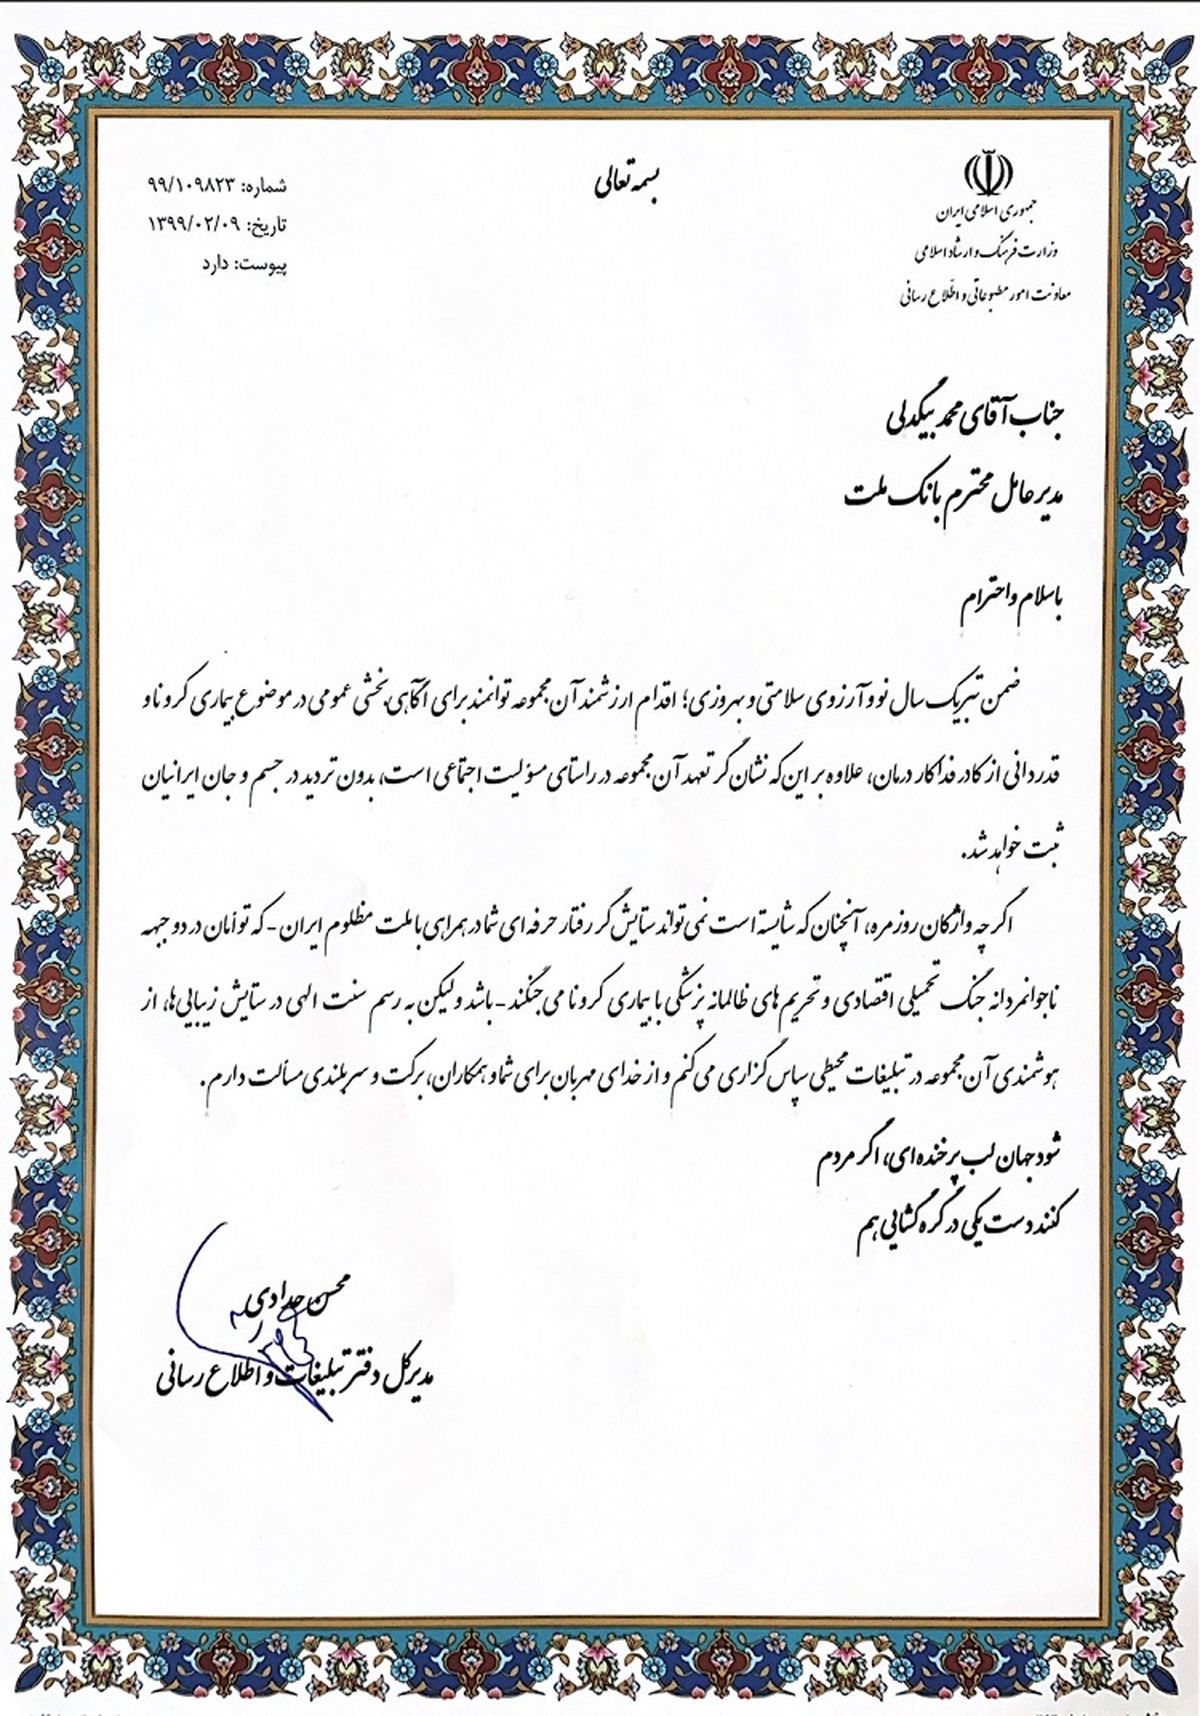 بسمه تعالی
جمهوری اسلامی ایران
وزارت فرهنگ و ارشاد اسلامی
معاونت امور مطبوعاتی و اطلاع رسانی
شماره: ۹۹/۱۰۹۸۲۳
تاریخ: ۱۳۹۹/۰۲/۰۹
پیوست: دارد
جناب آقای محمد بیگدلی
مدیر عامل محترم بانک ملت
با سلام و احترام
ضمن تبریک سال نو و آرزوی سلامتی و بهروزی؛ اقدام ارزشمند آن مجموعه توانمند برای آگاهی بخشی عمومی در موضوع بیماری کرونا و
قدردانی از کادر فداکار درمان، علاوه بر این‌که نشان‌گر تعهد آن مجموعه در راستای مسؤلیت اجتماعی است، بدون تردید در جسم و جان ایرانیان
ثبت خواهد شد.
اگر چه واژگان روزمره، آنچنان که شایسته است نمی تواند ستایش‌گر رفتار حرفه ای شما در همراهی با ملت مظلوم ایران - که توأمان در دو جبهه
ناجوانمردانه جنگ تحمیلی اقتصادی و تحریم های ظالمانه پزشکی با بیماری کرونا می جنگند - باشد ولیکن به رسم سنت الهی در ستایش زیبایی‌ها، از
هوشمندی آن مجموعه در تبلیغات محیطی سپاس گزاری می کنم و از خدای مهربان برای شما و همکاران، برکت و سربلندی مسألت دارم.
شود جهان لب پرخنده ای، اگر مردم
کنند دست یکی در گره گشایی هم
محسن حدادی
مدیرکل دفتر تبلیغات و اطلاع رسانی